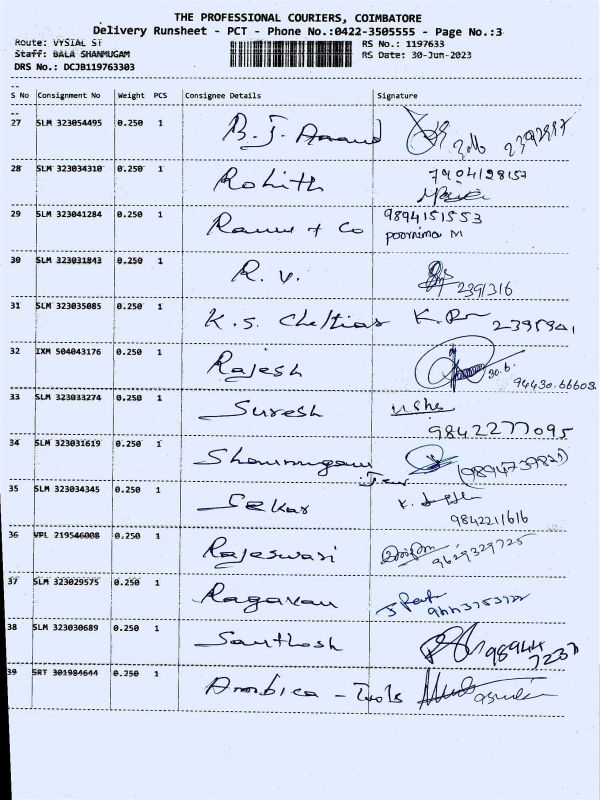 THE PROFESSIONAL COURIERS, COIMBATORE
Delivery Runsheet - PCT - Phone No.:0422-3505555 - Page No.:3
Route: VYSIAL ST RS No.: 1197633
Staff: BALA SHANMUGAM RS Date: 30-Jun-2023
DRS No.: DCJB119763303
S No Consignment No Weight PCS Consignee Details Signature
27 SLM 323054495 0.250 1 B. J. Anand
28 SLM 323034310 0.250 1 Rohith
29 SLM 323041284 0.250 1 & Co 9894151553
poornima M
30 SLM 323031843 0.250 1 R. V. 2391316
31 SLM 323035085 0.250 1 K. S. Chettias
32 IXM 504043176 0.250 1 Rajesh 30.6.
94430.66603
33 SLM 323033274 0.250 1 Suresh usha
9842277095
34 SLM 323031619 0.250 1 Shanmugam
35 SLM 323034345 0.250 1 Sekar K.
9842211616
36 VPL 219546008 0.250 1 Rajeswari 9629329725
37 SLM 323029575 0.250 1 Ragavan
38 SLM 323030689 0.250 1 Santhosh 98944
39 SRT 301984644 0.250 1 Ambica - Tools